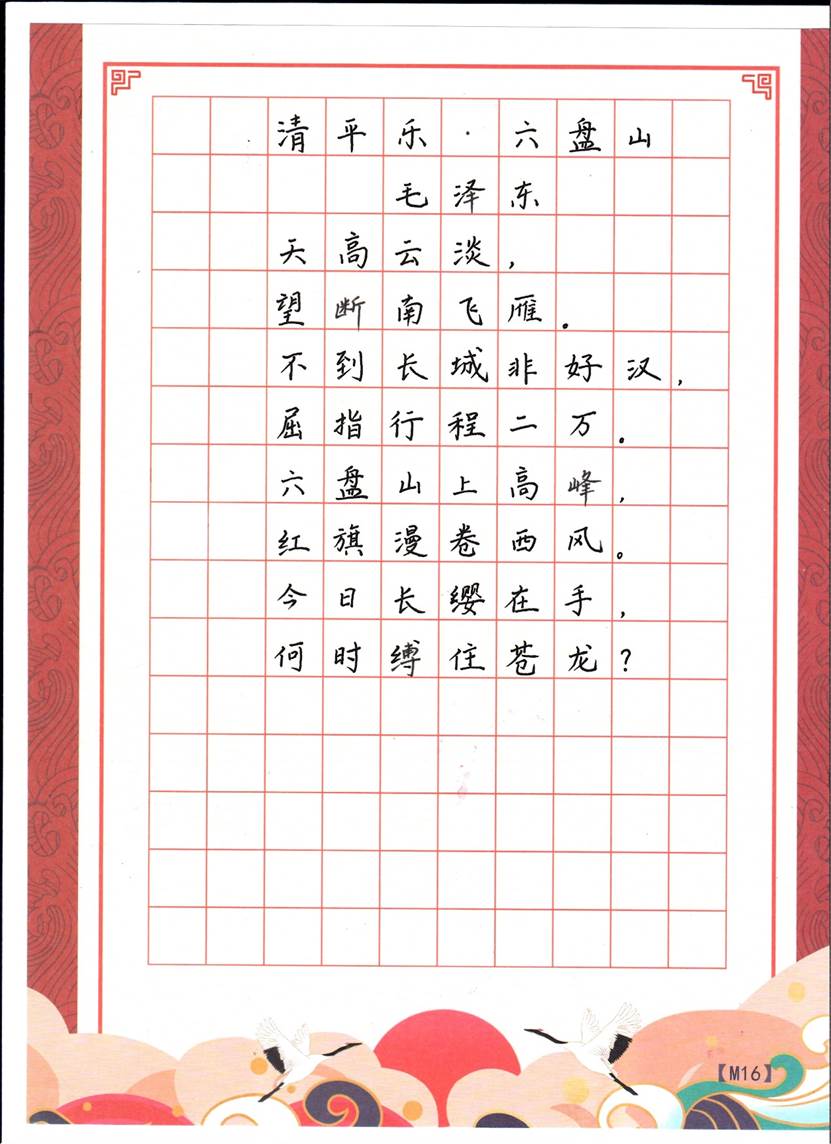 清平乐·六盘山
毛泽东
天高云淡，
望断南飞雁。
不到长城非好汉，
屈指行程二万。
六盘山上高峰，
红旗漫卷西风。
今日长缨在手，
何时缚住苍龙？
【M16】